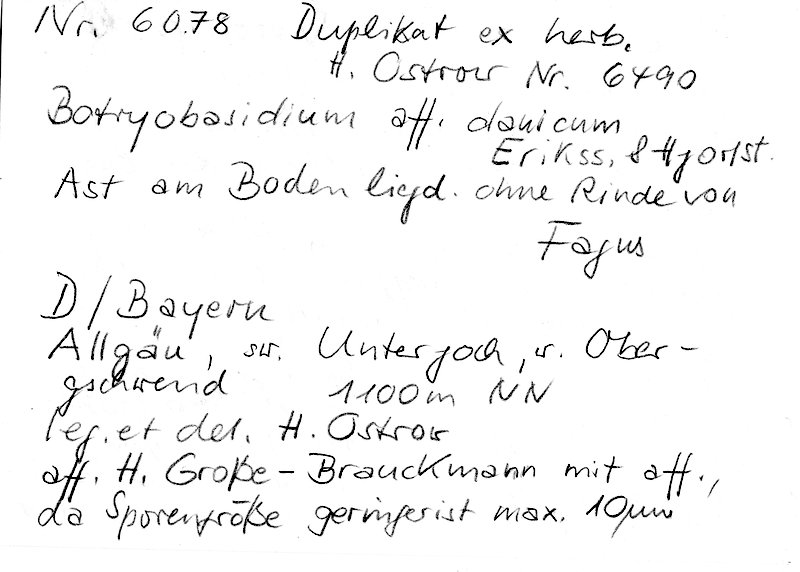 Nr. 6078 Duplikat ex herb.
H. Ostrow Nr. 6490
Botryobasidium aff. danicum
Erikss. & Hjortst.
Ast am Boden liegd. ohne Rinde von
Fagus
D/Bayern
Allgäu, sw. Unterjoch, w. Ober-
gschwend 1100m NN
leg. et det. H. Ostrow
aff. H. Große-Brauckmann mit aff.,
da Sporengröße geringer ist max. 10µm